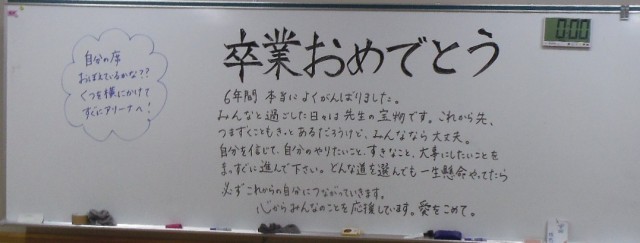 卒業おめでとう
0:00
自分の序
おぼえているかな??
くつを横にかけて
すぐにアリーナへ!
6年間 本当によくがんばりました。
みんなと過ごした日々は先生の宝物です。これから先、
つまずくこともきっとあるだろうけど、みんななら大丈夫。
自分を信じて、自分のやりたいこと、すきなこと、大事にしたいことを
まっすぐに進んで下さい。どんな道を選んでも一生懸命やってたら
必ずこれからの自分につながっていきます。
心からみんなのことを応援しています。愛をこめて。